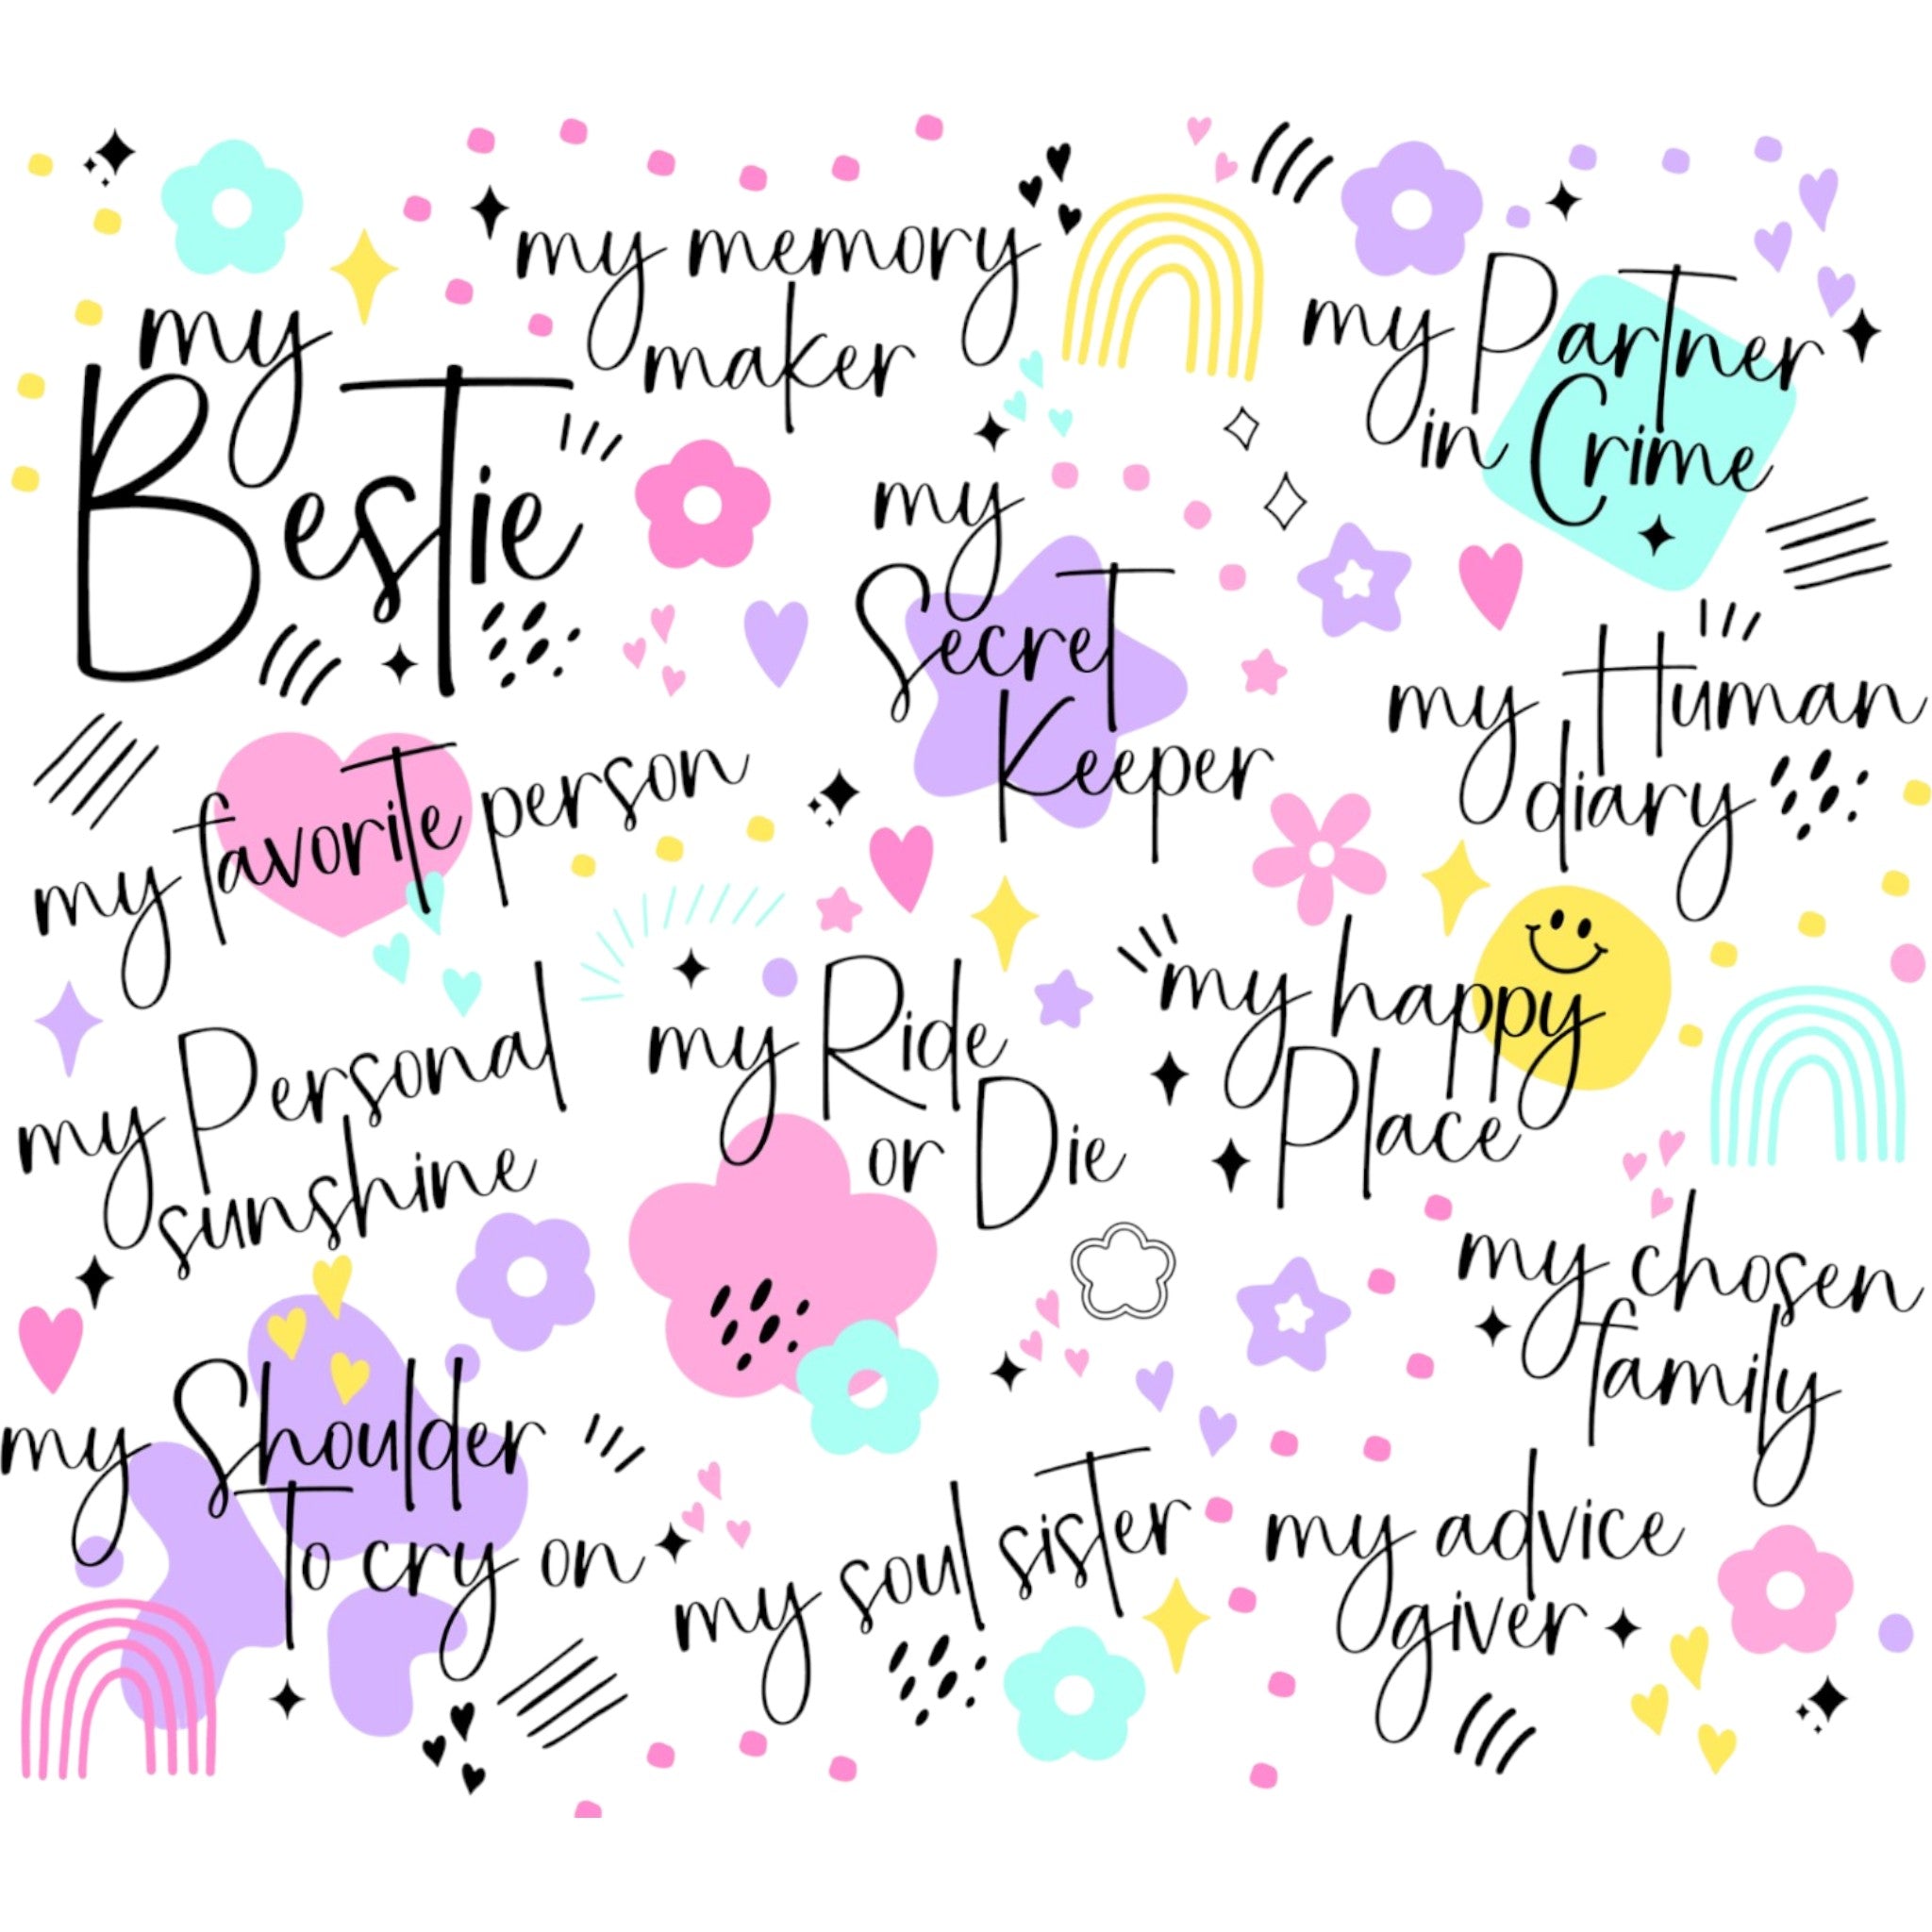 my memory
maker
my
Bestie
my Partner
in Crime
my
Secret
Keeper
my Human
diary
my favorite person
my happy
Place
my Personal
sunshine
my Ride
or Die
my chosen
family
my Shoulder
To cry on
my soul sister
my advice
giver